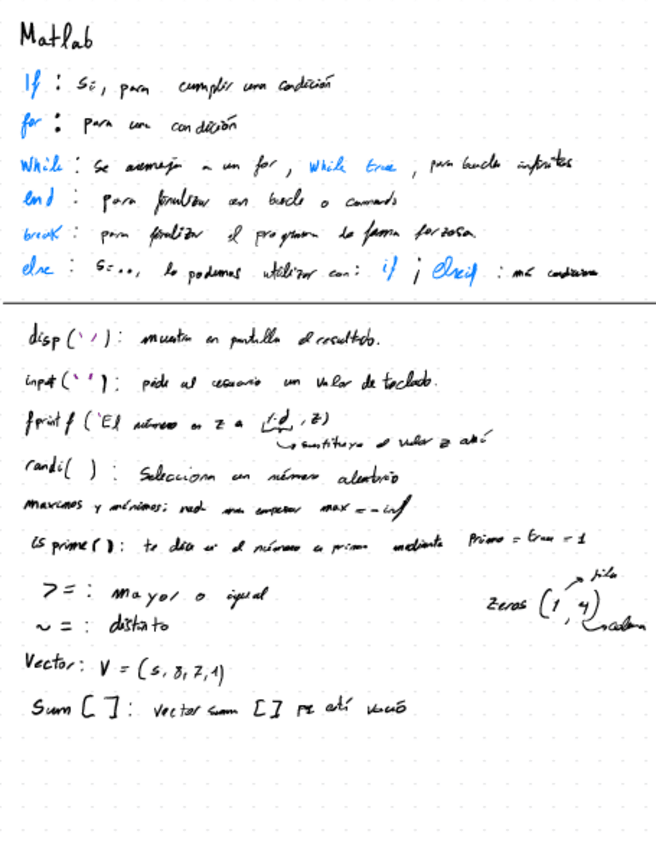 Matlab
If : Si, para cumplir una condición
for : para una condición
While : se asemeja a un for, While true, para bucles infinitos
end : para finalizar un bucle o comando
break : para finalizar el programa de forma forzosa.
else : Si.., lo podemos utilizar con: if ; elseif : más condiciones
disp (' ') : muestra en pantalla el resultado.
input (' ') : pide al usuario un valor de teclado.
fprintf ('El número es z = %d, z)
sustituye el valor z ahí
randi( ) : Selecciona un número aleatorio
maximos y mínimos: empezar max = -inf
isprime( ) : te dice si el número es primo mediante Primo = true = 1
>= : mayor o igual
~= : distinto
zeros (1, 4)
fila
columna
Vector: V = (5, 8, 7, 1)
Sum [ ] : vector sum [ ] está vacío